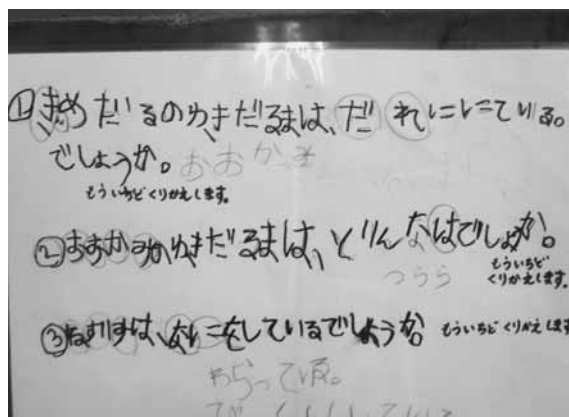 ①きめだいるのゆきだるまは、だれににている。
でしょうか。おおかま
もういちどくりかえします。
②おおかみかゆきだるまは、どりんなはでしょか。
もういちど
つらら
くりかえします。
③ねずりすは、ないこをしているでしょうか。もういちどくりかえします
わらって